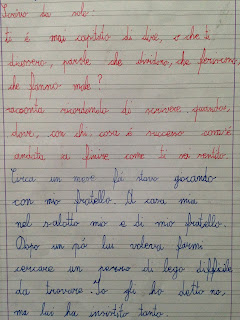 Scrivo da solo
ti è mai capitato di dire, o che ti
dicessero, parole che dividono, che feriscono,
che fanno male?
racconta ricordando di scrivere quando,
dove, con chi cosa è successo com'è
andata a finire come ti sei sentito.
Circa un mese fa stavo giocando
con mio fratello. A casa mia
nel salotto mio e di mio fratello.
Dopo un pò lui voleva farmi
cercare un pezzo di lego difficile
da trovare. Io gli ho detto no,
ma lui ha insistito tanto.